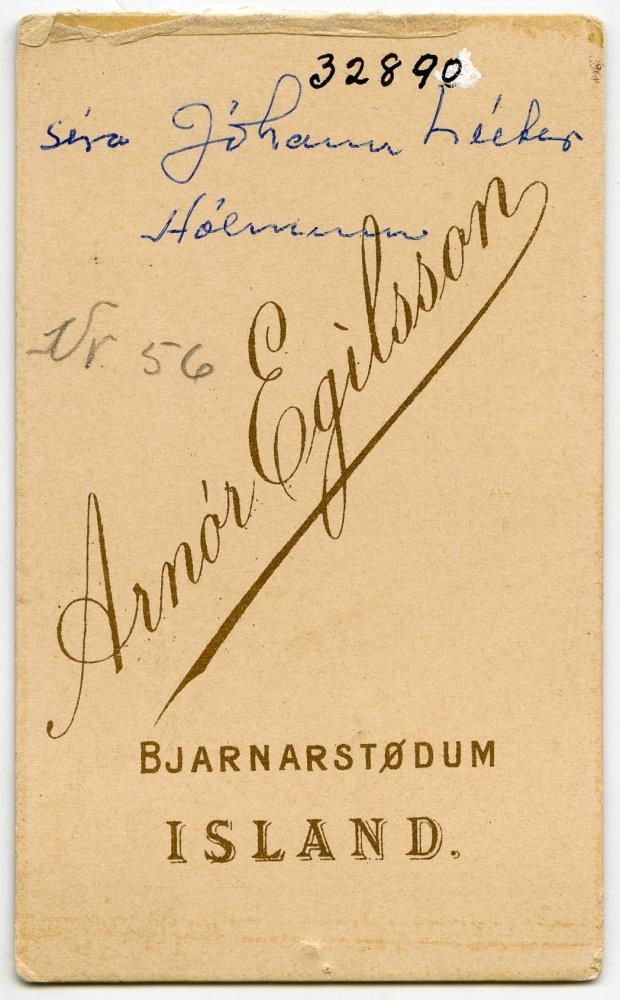 32890
séra Jóhann
Nr. 56
Arnór Egilsson
BJARNARSTØDUM
ISLAND.